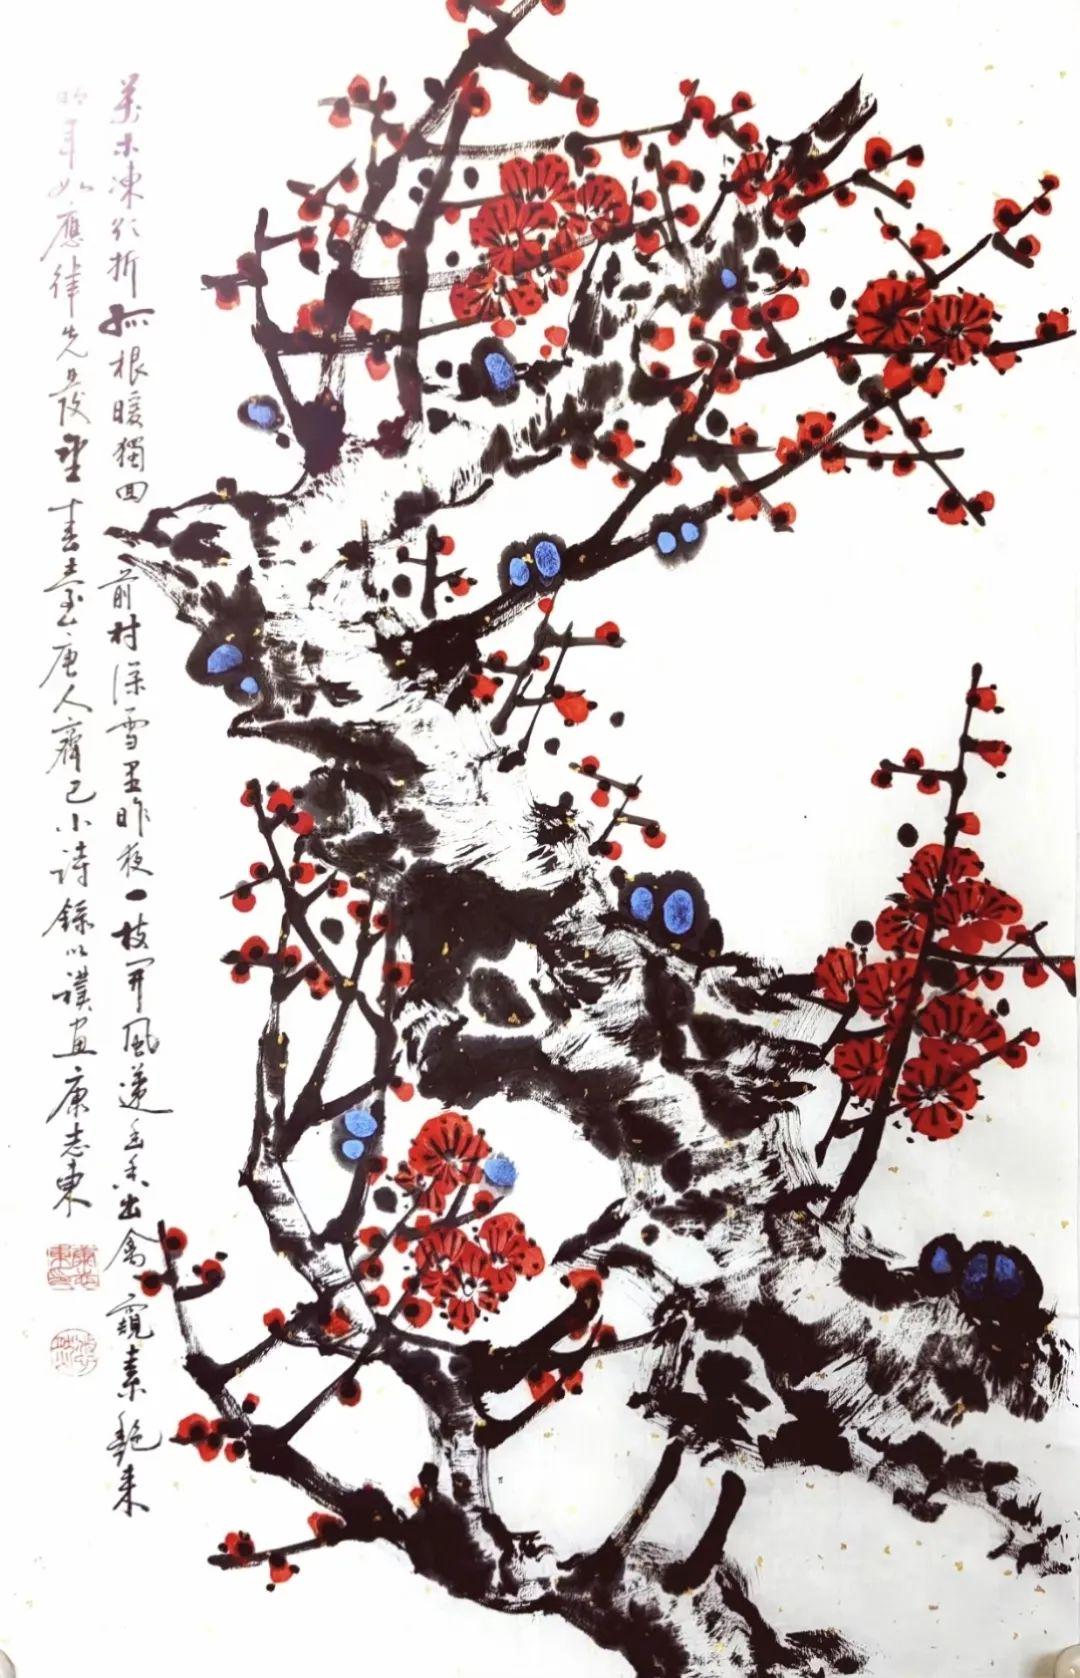 萬木凍欲折孤根暖獨回前村深雪里昨夜一枝開風遞幽香出禽窺素艷来
明年如應律先發望春臺唐人齊己小詩錄以画康志東